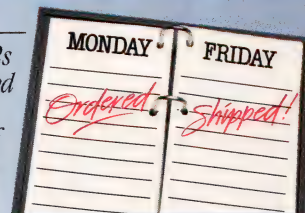 MONDAY
FRIDAY
Ordered
Shipped!